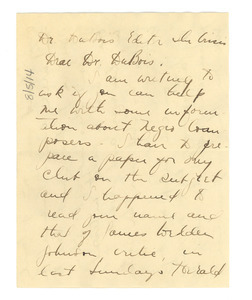 Dr. DuBois Edtr
Dear Dr. DuBois.
I am writing to
ask if you can help
me with some inform
ation about Negro Com
posers. I have to pre-
pare a paper for my
Club on the subject
and I happened to
read your name and
that of James Weldon
Johnson in
last Sunday's Herald
8/5/14